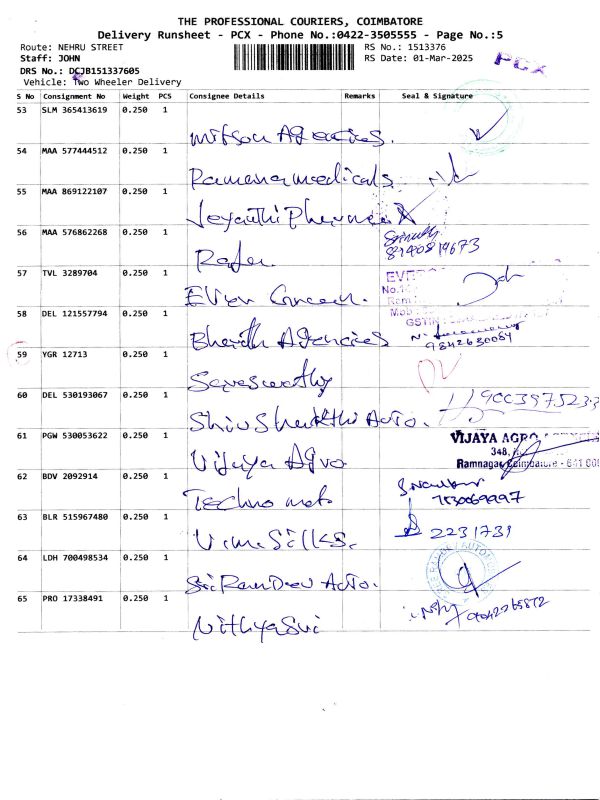 THE PROFESSIONAL COURIERS, COIMBATORE
Delivery Runsheet - PCX - Phone No.:0422-3505555 - Page No.:5
Route: NEHRU STREET RS No.: 1513376
Staff: JOHN RS Date: 01-Mar-2025
PCX
DRS No.: DCJB151337605
Vehicle: Two Wheeler Delivery
S No Consignment No Weight PCS Consignee Details Remarks Seal & Signature
53 SLM 365413619 0.250 1
Agencies.
54 MAA 577444512 0.250 1
Ramana medicals.
55 MAA 869122107 0.250 1
Jeyanthi
56 MAA 576862268 0.250 1
57 TVL 3289704 0.250 1
58 DEL 121557794 0.250 1
GSTIN
Agencies
9842630064
59 YGR 12713 0.250 1
60 DEL 530193067 0.250 1
Auto.
61 PGW 530053622 0.250 1 VIJAYA AGRO
348,
Vijaya Agro Ramnagar, Coimbatore - 641 009
62 BDV 2092914 0.250 1
Techno
63 BLR 515967480 0.250 1
Silks. 2231739
64 LDH 700498534 0.250 1
Sri Ram Dev Auto.
65 PRO 17338491 0.250 1
Nithya Sri